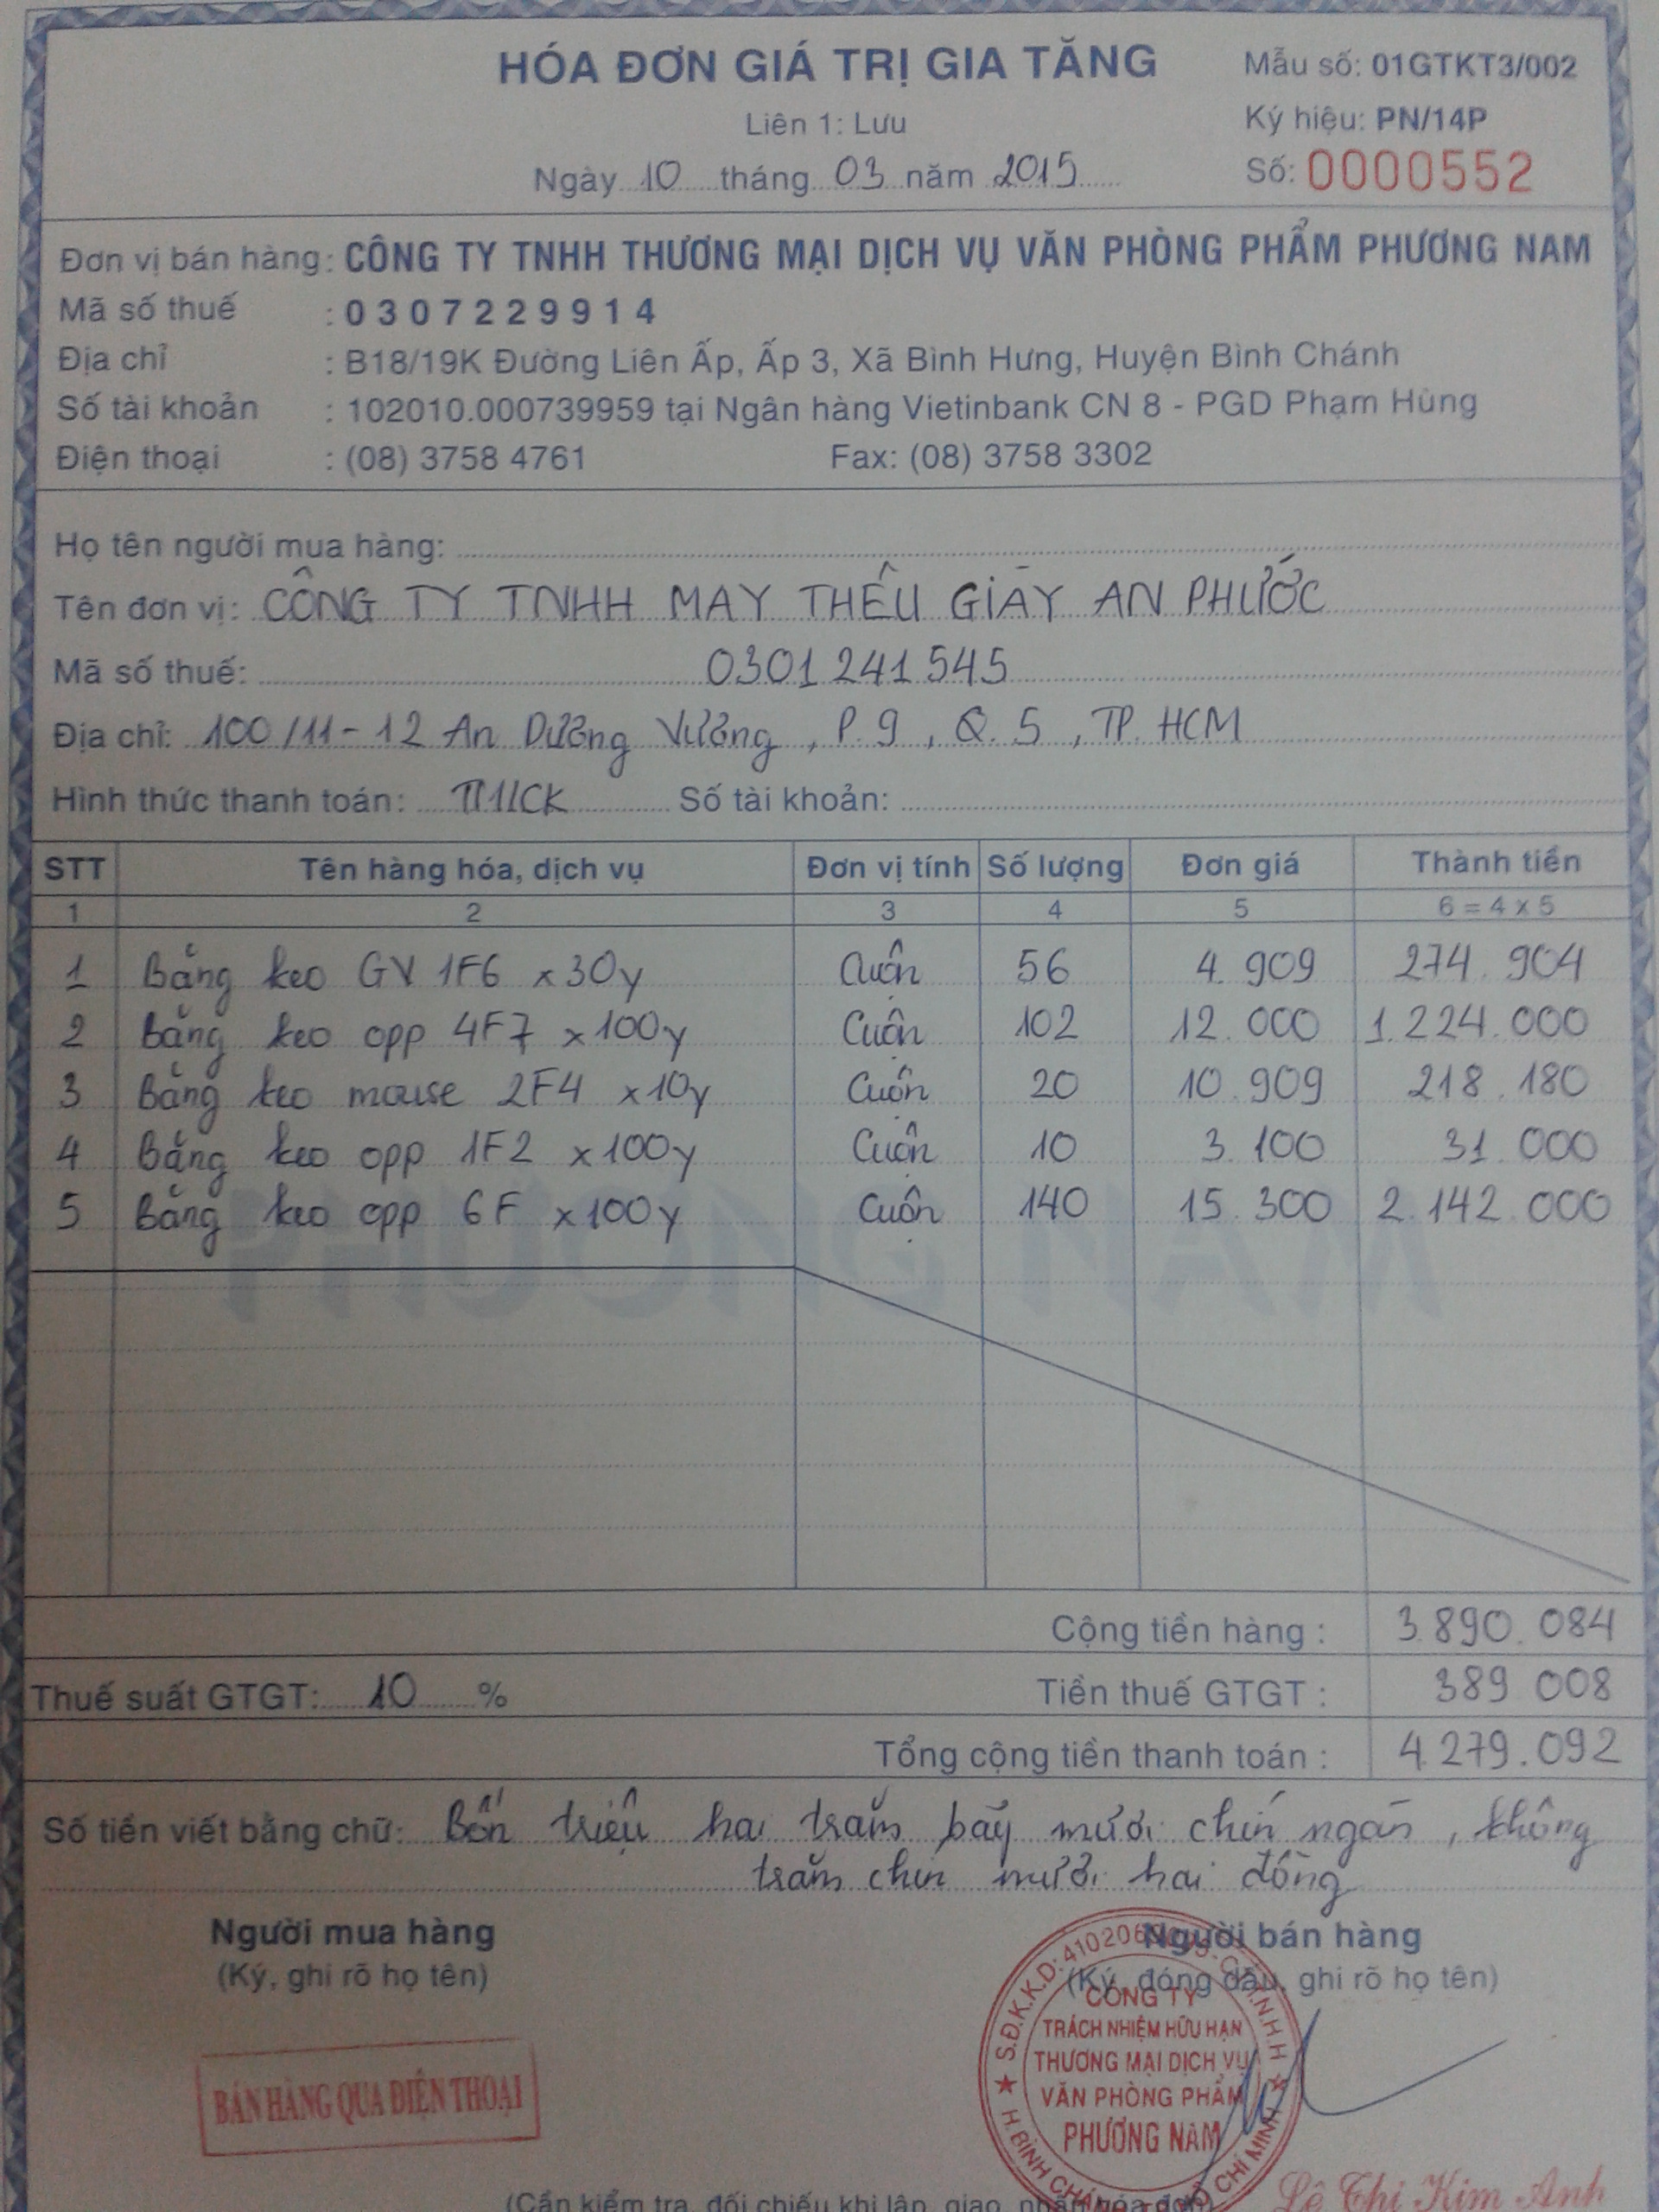 HÓA ĐƠN GIÁ TRỊ GIA TĂNG
Mẫu số: 01GTKT3/002
Liên 1: Lưu
Ký hiệu: PN/14P
Ngày 10 tháng 03 năm 2015
Số: 0000552
Đơn vị bán hàng: CÔNG TY TNHH THƯƠNG MẠI DỊCH VỤ VĂN PHÒNG PHẨM PHƯƠNG NAM
Mã số thuế : 0307229914
Địa chỉ : B18/19K Đường Liên Ấp, Ấp 3, Xã Bình Hưng, Huyện Bình Chánh
Số tài khoản : 102010.000739959 tại Ngân hàng Vietinbank CN 8 - PGD Phạm Hùng
Điện thoại : (08) 3758 4761 Fax: (08) 3758 3302
Họ tên người mua hàng:
Tên đơn vị: CÔNG TY TNHH MAY THÊU GIÀY AN PHƯỚC
Mã số thuế: 0301241545
Địa chỉ: 100/11-12 An Dương Vương, P.9, Q.5, TP. HCM
Hình thức thanh toán: TM/CK Số tài khoản:
STT Tên hàng hóa, dịch vụ Đơn vị tính Số lượng Đơn giá Thành tiền
1 2 3 4 5 6 = 4 x 5
1 Băng keo GV 1F6 x 30y Cuộn 56 4.909 274.904
2 Băng keo opp 4F7 x 100y Cuộn 102 12.000 1.224.000
3 Băng keo mouse 2F4 x 10y Cuộn 20 10.909 218.180
4 Băng keo opp 1F2 x 100y Cuộn 10 3.100 31.000
5 Băng keo opp 6F x 100y Cuộn 140 15.300 2.142.000
PHƯƠNG NAM
Cộng tiền hàng : 3.890.084
Thuế suất GTGT: 10 % Tiền thuế GTGT : 389.008
Tổng cộng tiền thanh toán : 4.279.092
Số tiền viết bằng chữ: Bốn triệu hai trăm bảy mươi chín ngàn, không
trăm chín mươi hai đồng
Người mua hàng Người bán hàng
(Ký, ghi rõ họ tên) (Ký, đóng dấu, ghi rõ họ tên)
BÁN HÀNG QUA ĐIỆN THOẠI
CÔNG TY
TRÁCH NHIỆM HỮU HẠN
THƯƠNG MẠI DỊCH VỤ
VĂN PHÒNG PHẨM
PHƯƠNG NAM
Lê Thị Kim Anh
(Cần kiểm tra, đối chiếu khi lập, giao, nhận hóa đơn)